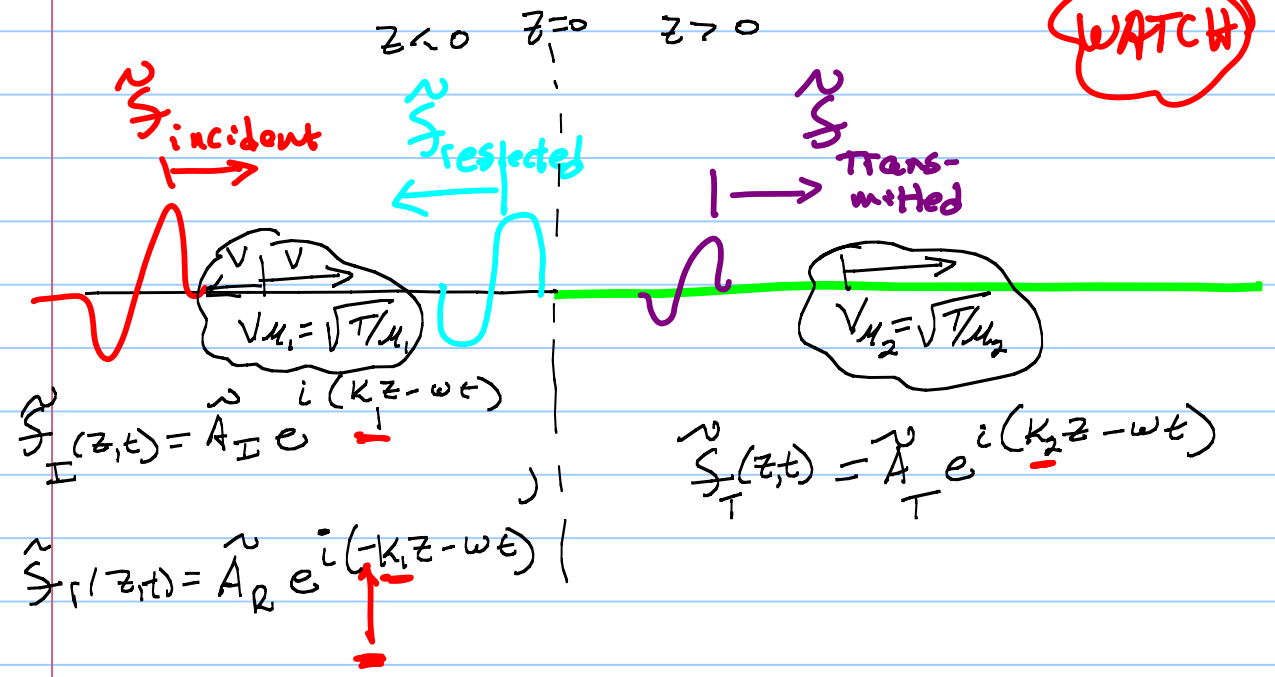 z < 0 z=0 z > 0 WATCH
f̃ incident
f̃ reflected
f̃ Trans-
mitted
v v
v_μ₁ = √T/μ₁
v_μ₂ = √T/μ₂
f̃_I(z,t) = Ã_I e^i(k₁z-ωt)
f̃_T(z,t) = Ã_T e^i(k₂z-ωt)
f̃_r(z,t) = Ã_R e^i(-k₁z-ωt)